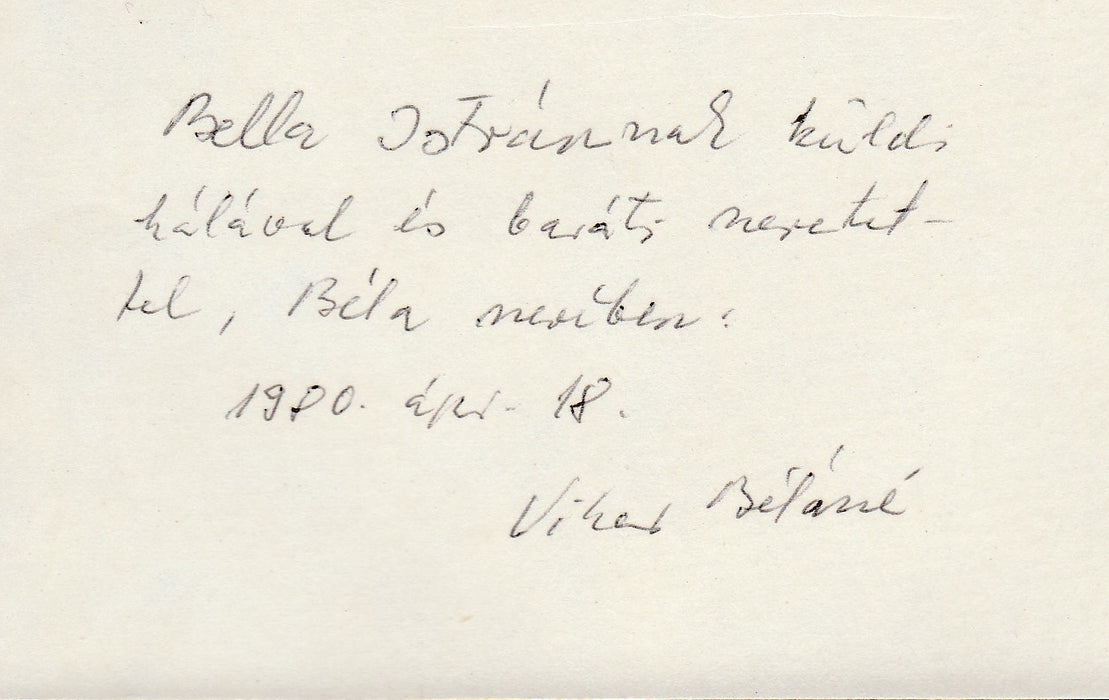 Bella Istvánnak küldi
hálával és baráti szeretet-
tel, Béla nevében:
1980. ápr. 18.
Vihar Béláné